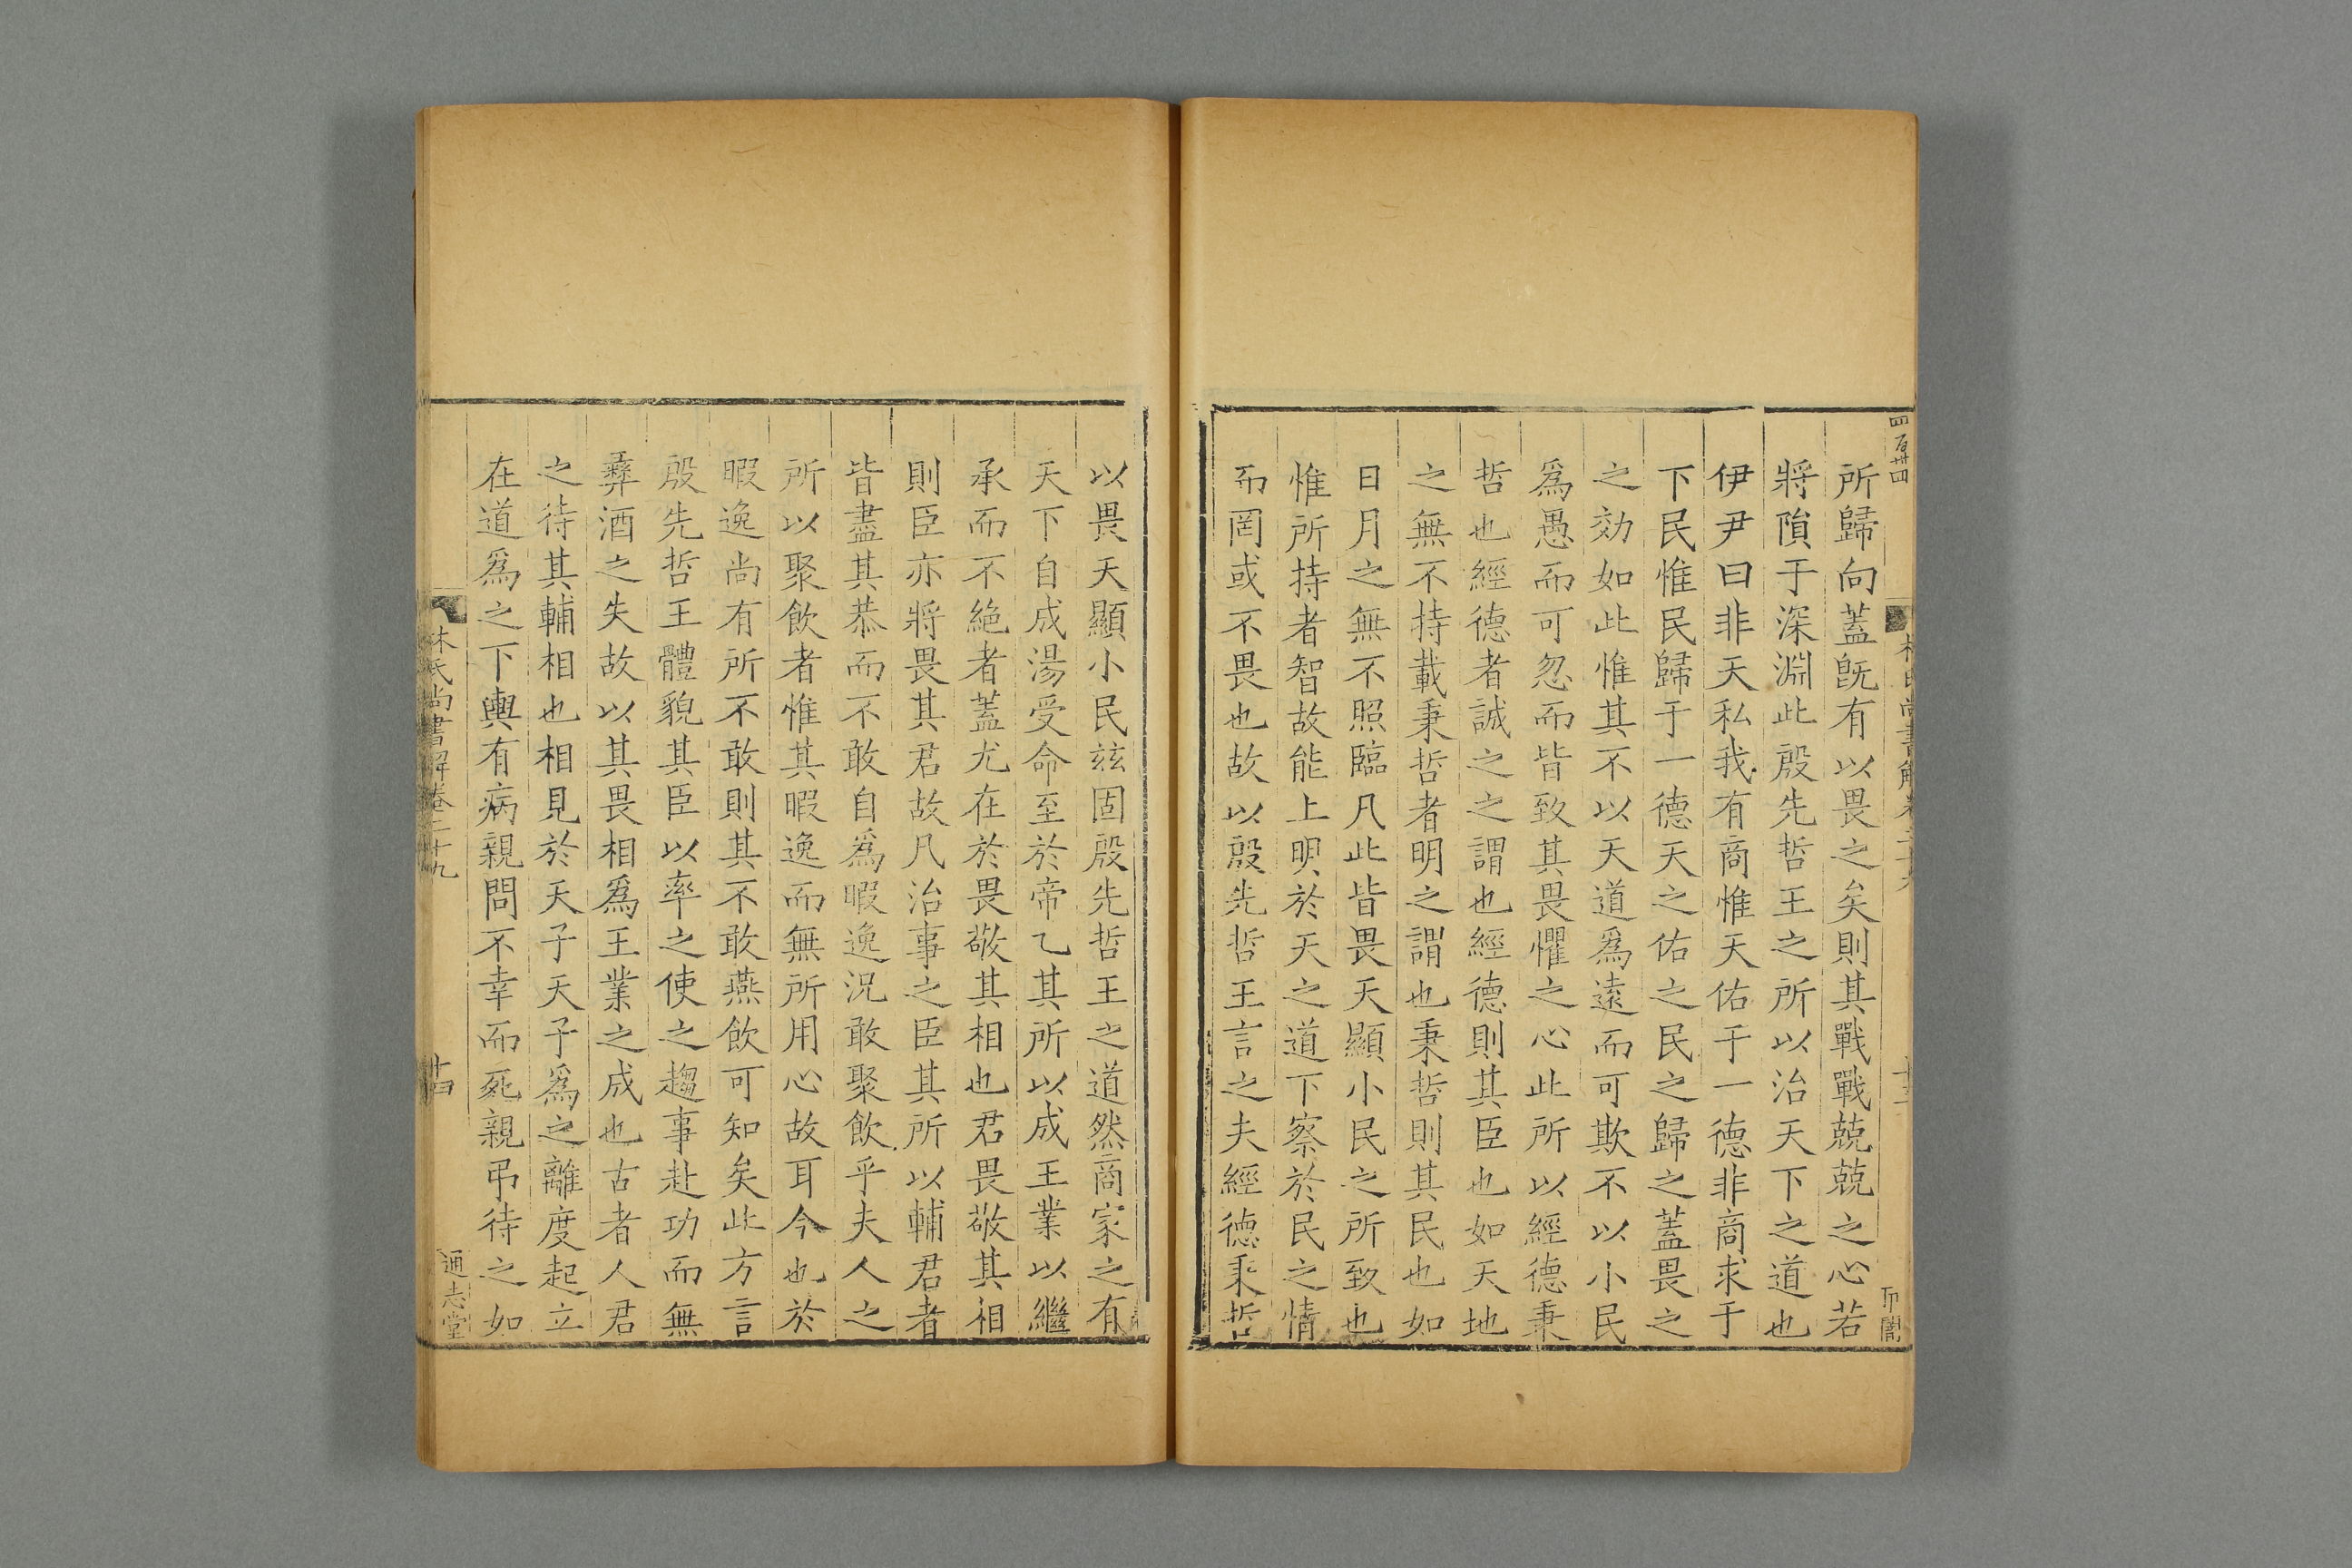 四百卅四
所歸向蓋旣有以畏之矣則其戰戰兢兢之心若
將隕于深淵此殷先哲王之所以治天下之道也
伊尹曰非天私我有商惟天佑于一德非商求于
下民惟民歸于一德天之佑之民之歸之蓋畏之
之効如此惟其不以天道爲遠而可欺不以小民
爲愚而可忽而皆致其畏懼之心此所以經德秉
哲也經德者誠之之謂也經德則其臣也如天地
之無不持載秉哲者明之謂也秉哲則其民也如
日月之無不照臨凡此皆畏天顯小民之所致也
惟所持者智故能上明於天之道下察於民之情
而罔或不畏也故以殷先哲王言之夫經德秉哲
以畏天顯小民玆固殷先哲王之道然商家之有
天下自成湯受命至於帝乙其所以成王業以繼
承而不絶者蓋尤在於畏敬其相也君畏敬其相
則臣亦將畏其君故凡治事之臣其所以輔君者
皆盡其恭而不敢自爲暇逸況敢聚飲乎夫人之
所以聚飲者惟其暇逸而無所用心故耳今也於
暇逸尚有所不敢則其不敢燕飲可知矣此方言
殷先哲王體貌其臣以率之使之趨事赴功而無
彝酒之失故以其畏相爲王業之成也古者人君
之待其輔相也相見於天子天子爲之離度起立
在道爲之下輿有病親問不幸而死親弔待之如
林氏尚書解卷二十九
十四
通志堂